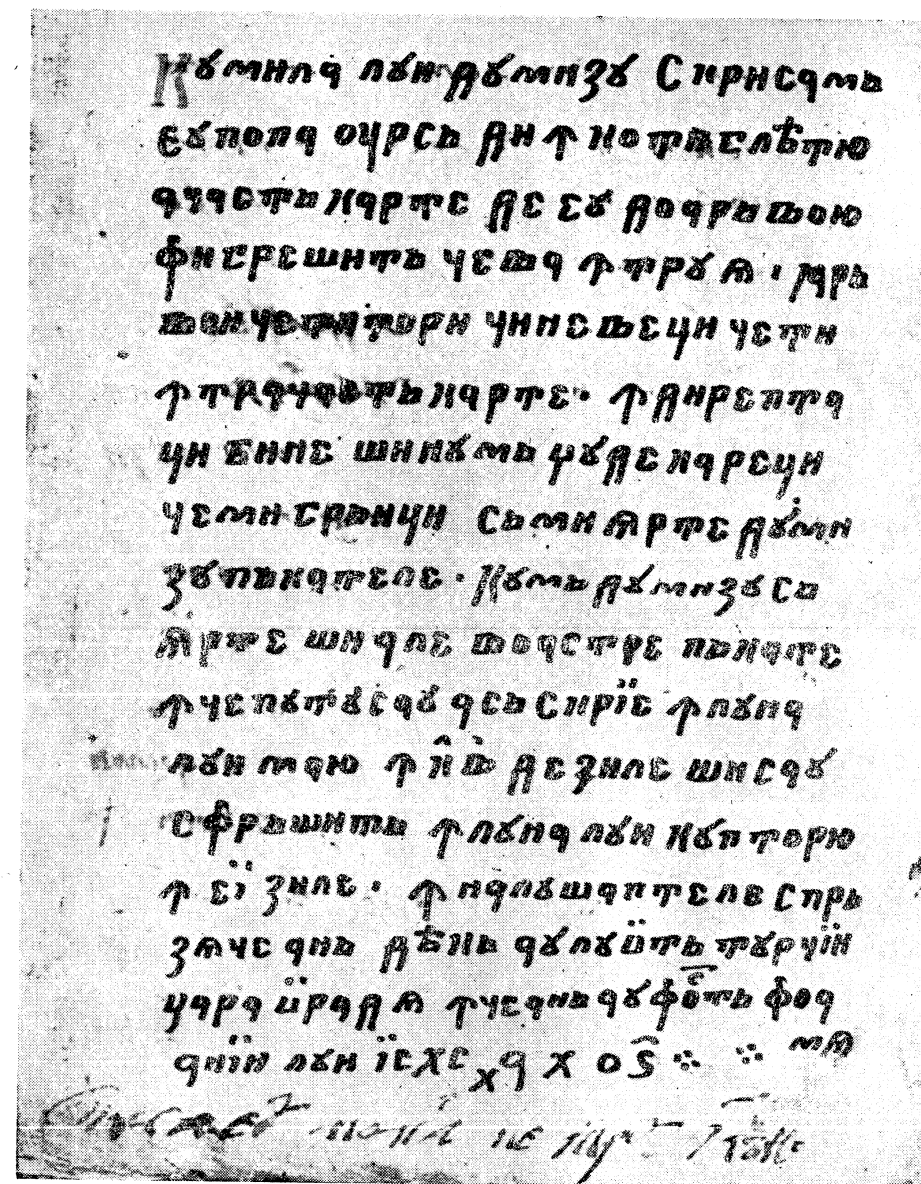 Кꙋмила лꙋи дꙋмнзꙋ С крисамь
Єꙋ попа оурсь ди ꙟ котиглѣтю
ачасть карте де єꙋ доарь вою
фи грешить чева ꙟтрꙋѧ · Ꙗрь
вои чинє вєци чєти
ꙟтрачасть карте · ꙟдирепта
ци бине шинꙋмь џꙋдекареци
чеми грьици сьмиѧрте дꙋмни
зꙋ пькателе · Кꙋмь дꙋмнзꙋ сь
ѧрте ши але воастре пькате
ꙟчепꙋтꙋсаꙋ асьскрїе ꙟлꙋна
лꙋи маю ꙟ к҃в де зиле шисаꙋ
сфрьшить ꙟлꙋна лꙋи кꙋпторю
ꙟ еї зиле · ꙟ налꙋшаптеле спрь
зѧче ань дѣнь аꙋлꙋить тꙋрчїи
цара ѡрадѧ ꙟчеань аꙋ фость фоа
анїи лꙋи їс хс ҂а х о ѕ ⁘ ⁘ мѧ